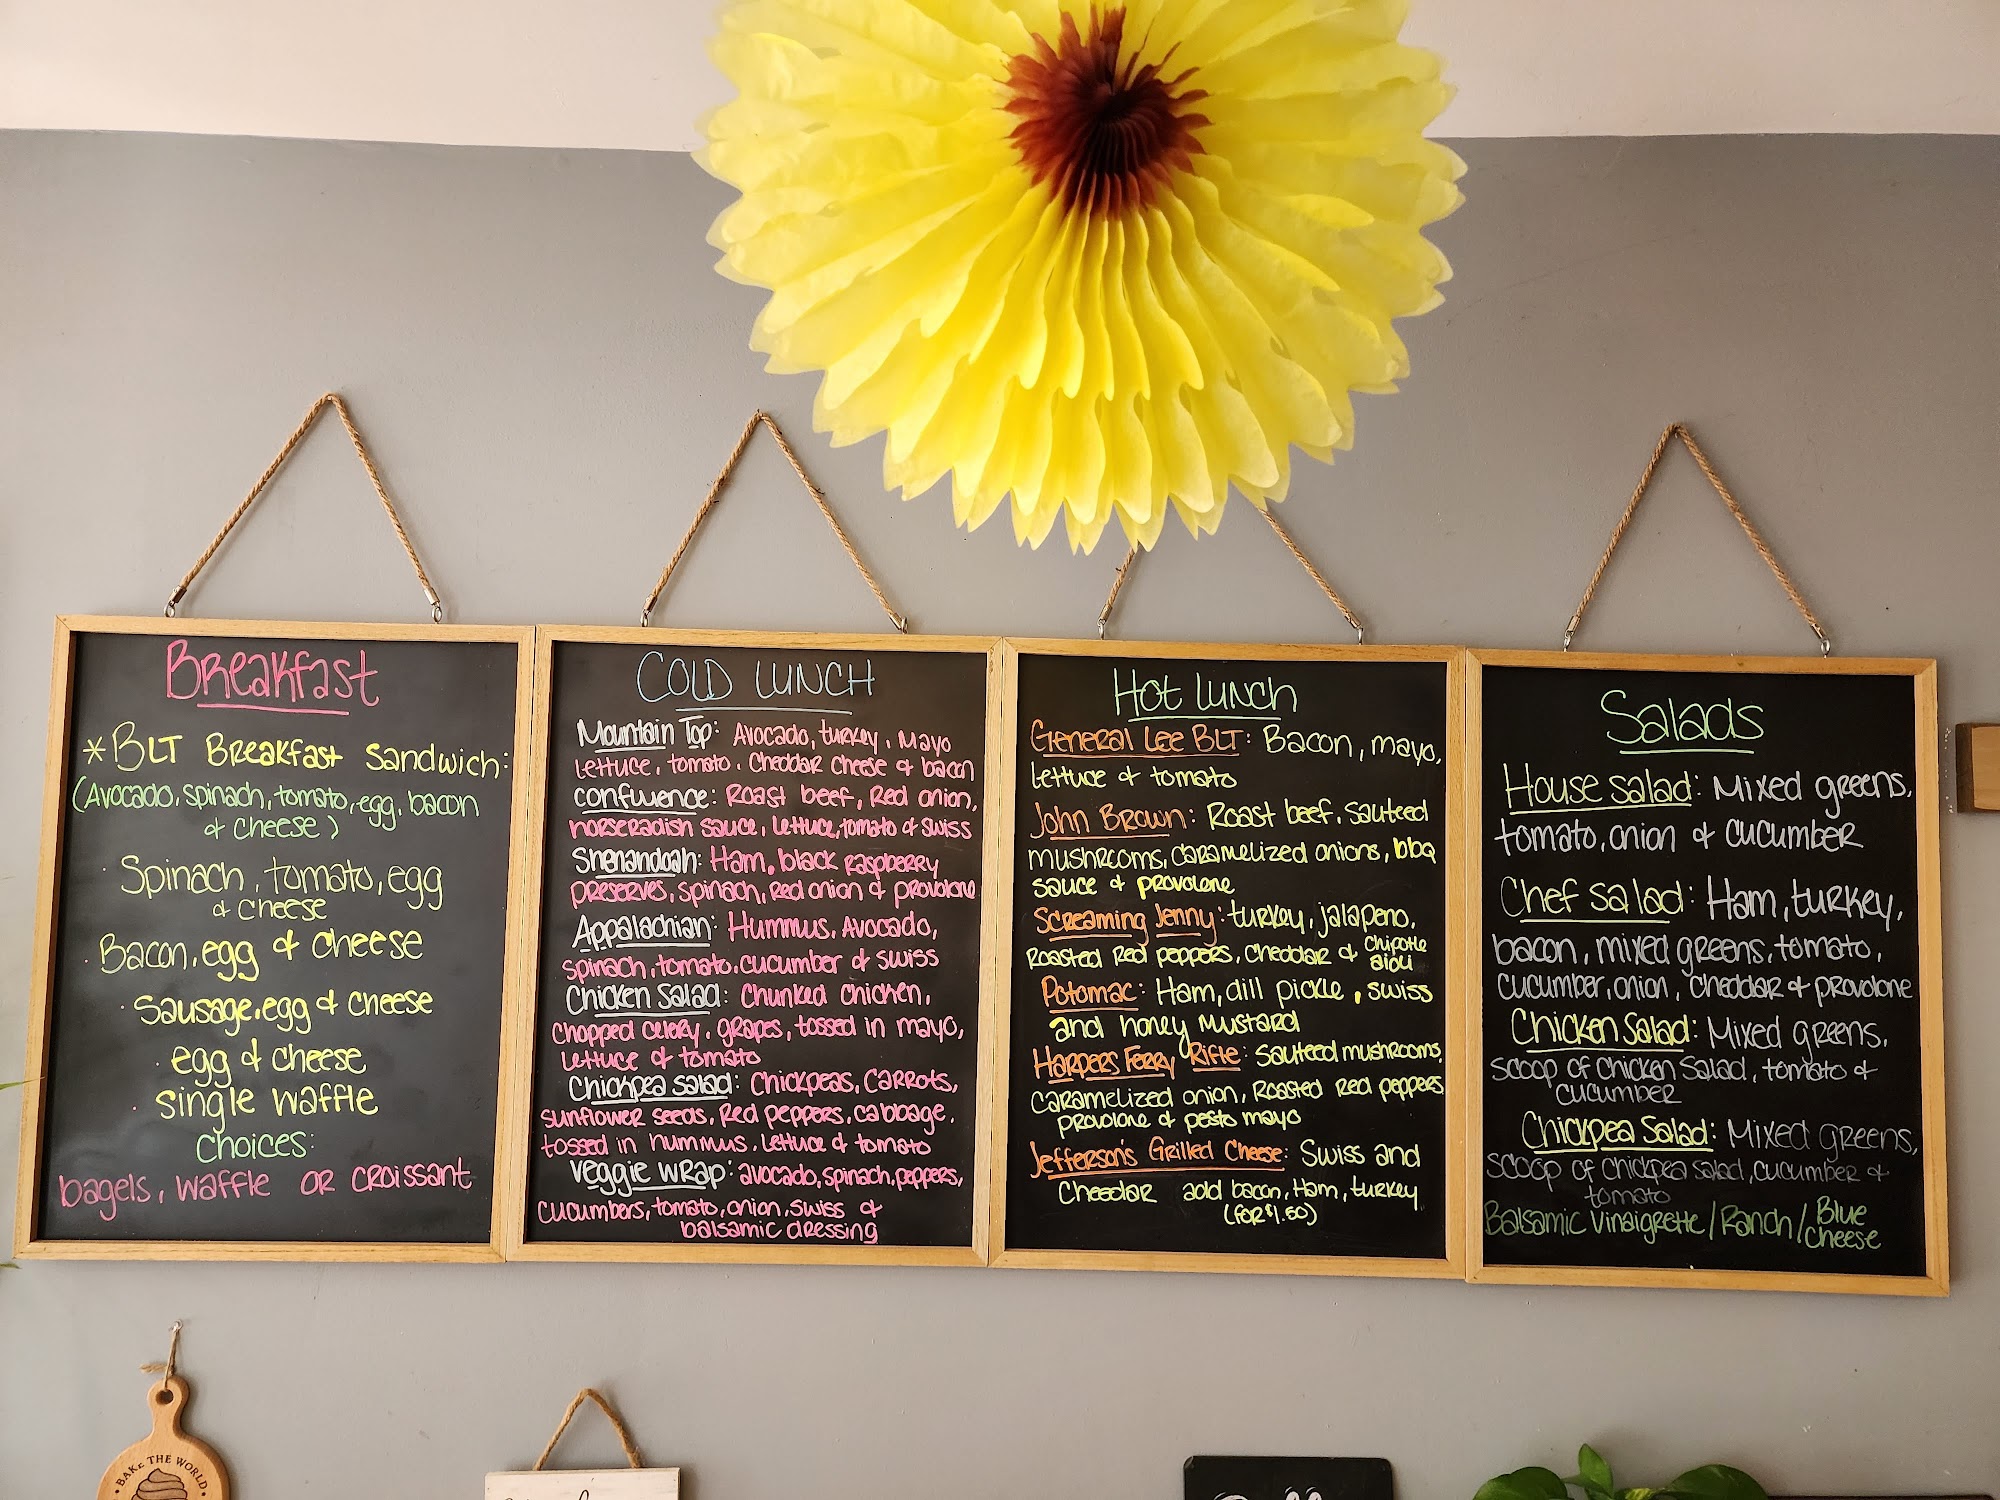 Breakfast
*BLT Breakfast Sandwich:
(Avocado, spinach, tomato, egg, bacon
& cheese)
· Spinach, tomato, egg
& cheese
· Bacon, egg & cheese
· Sausage, egg & cheese
· egg & cheese
· single waffle
choices:
bagels, waffle or croissant
COLD LUNCH
Mountain Top: Avocado, turkey, mayo
lettuce, tomato, cheddar cheese & bacon
confluence: Roast beef, Red onion,
horseradish sauce, lettuce, tomato & swiss
Shenandoah: Ham, black raspberry
preserves, spinach, Red onion & provolone
Appalachian: Hummus, Avocado,
spinach, tomato, cucumber & swiss
Chicken Salad: Chunked chicken,
chopped celery, grapes, tossed in mayo,
lettuce & tomato
Chickpea salad: Chickpeas, Carrots,
sunflower seeds, Red peppers, cabbage,
tossed in hummus, lettuce & tomato
veggie wrap: avocado, spinach, peppers,
cucumbers, tomato, onion, swiss &
balsamic dressing
Hot Lunch
General Lee BLT: Bacon, mayo,
lettuce & tomato
John Brown: Roast beef, Sauteed
mushrooms, caramelized onions, bbq
sauce & provolone
Screaming Jenny: turkey, jalapeno,
Roasted Red peppers, cheddar & chipotle
aioli
Potomac: Ham, dill pickle, swiss
and honey mustard
Harpers Ferry Rifle: Sauteed mushrooms,
caramelized onion, Roasted Red peppers
provolone & pesto mayo
Jefferson's Grilled Cheese: Swiss and
Cheddar add bacon, Ham, turkey
(for $1.50)
Salads
House salad: Mixed greens,
tomato, onion & cucumber
Chef salad: Ham, turkey,
bacon, mixed greens, tomato,
cucumber, onion, cheddar & provolone
Chicken Salad: Mixed greens,
scoop of chicken salad, tomato &
cucumber
Chickpea Salad: Mixed greens,
scoop of chickpea salad, cucumber &
tomato
Balsamic Vinaigrette/Ranch/Blue
Cheese
· BAKE THE WORLD ·